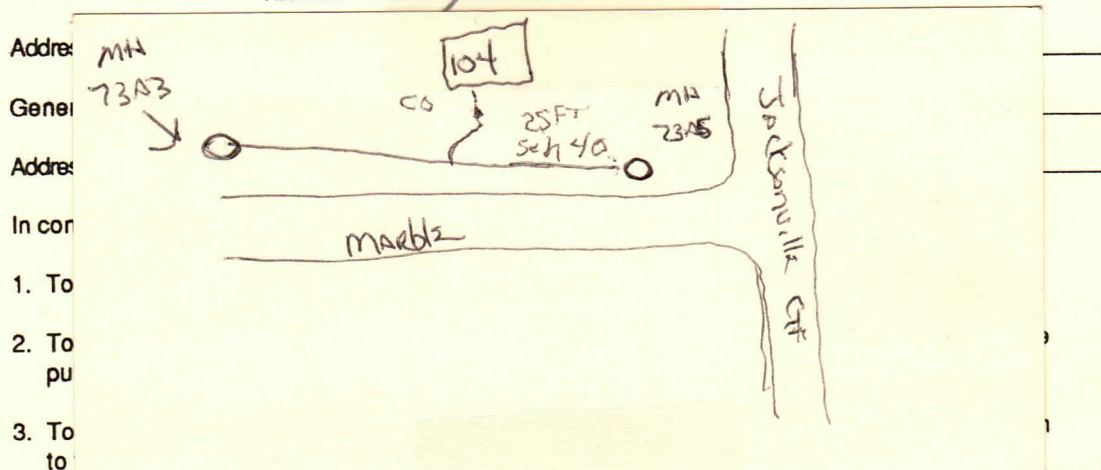 Addre
Gener
Addre
In con
1. To
2. To
pu
3. To
to
MH
73A3
104
CO
25FT
Sch 40
MH
73A5
MARBLE
Jacksonville